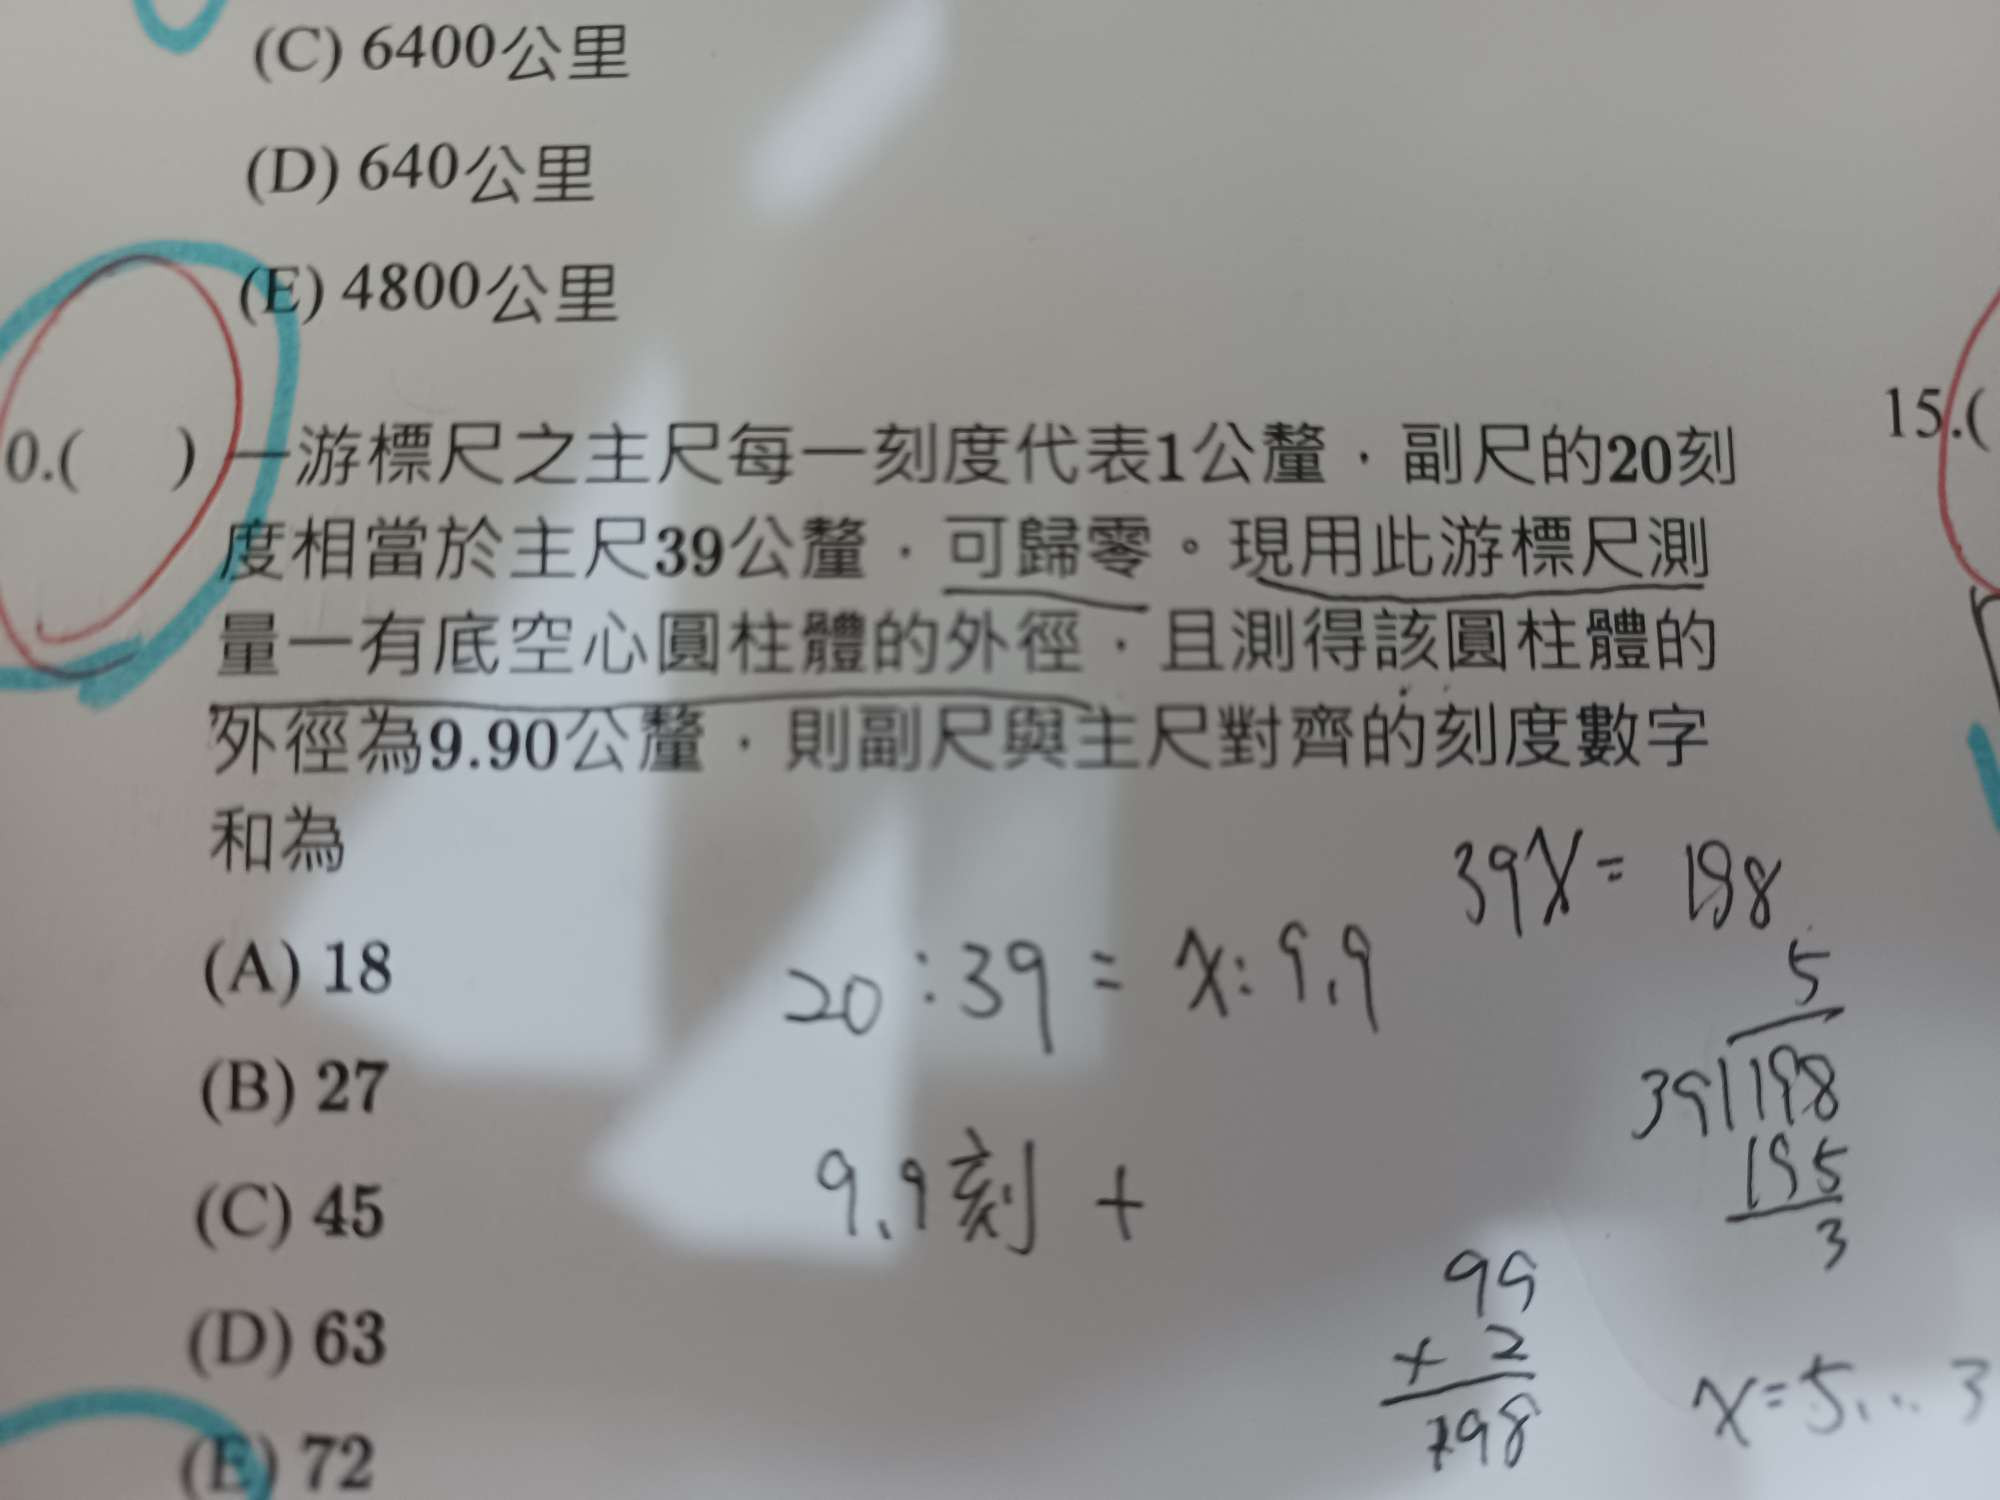 (C) 6400公里
(D) 640公里
(E) 4800公里
0.( ) 一游標尺之主尺每一刻度代表1公釐，副尺的20刻
度相當於主尺39公釐，可歸零。現用此游標尺測
量一有底空心圓柱體的外徑，且測得該圓柱體的
外徑為9.90公釐，則副尺與主尺對齊的刻度數字
和為
(A) 18
(B) 27
(C) 45
(D) 63
(E) 72
15.(
39x = 198
20 : 39 = x : 9.9
5
39 198
195
3
9.9刻 +
99
× 2
198
x = 5...3